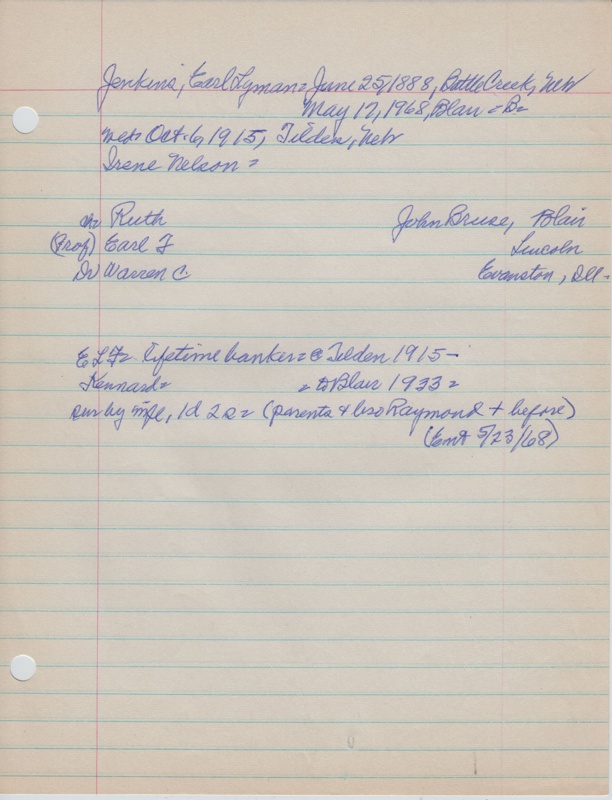 Jenkins, Earl Lyman = June 25, 1888, Battle Creek, Neb
May 17, 1968, Blair = B=
med= Oct. 6, 1915, Tilden, Neb
Irene Nelson =
ch= Ruth John Bruse, Blair
(Prof) Earl F Lincoln
Dr Warren C. Evanston, Ill=
lifetime banker = @ Tilden 1915 -
Kennard = = to Blair 1933 =
sur by wife, 1d 2s = (parents & bro Raymond + before)
(Ent 5/23/68)